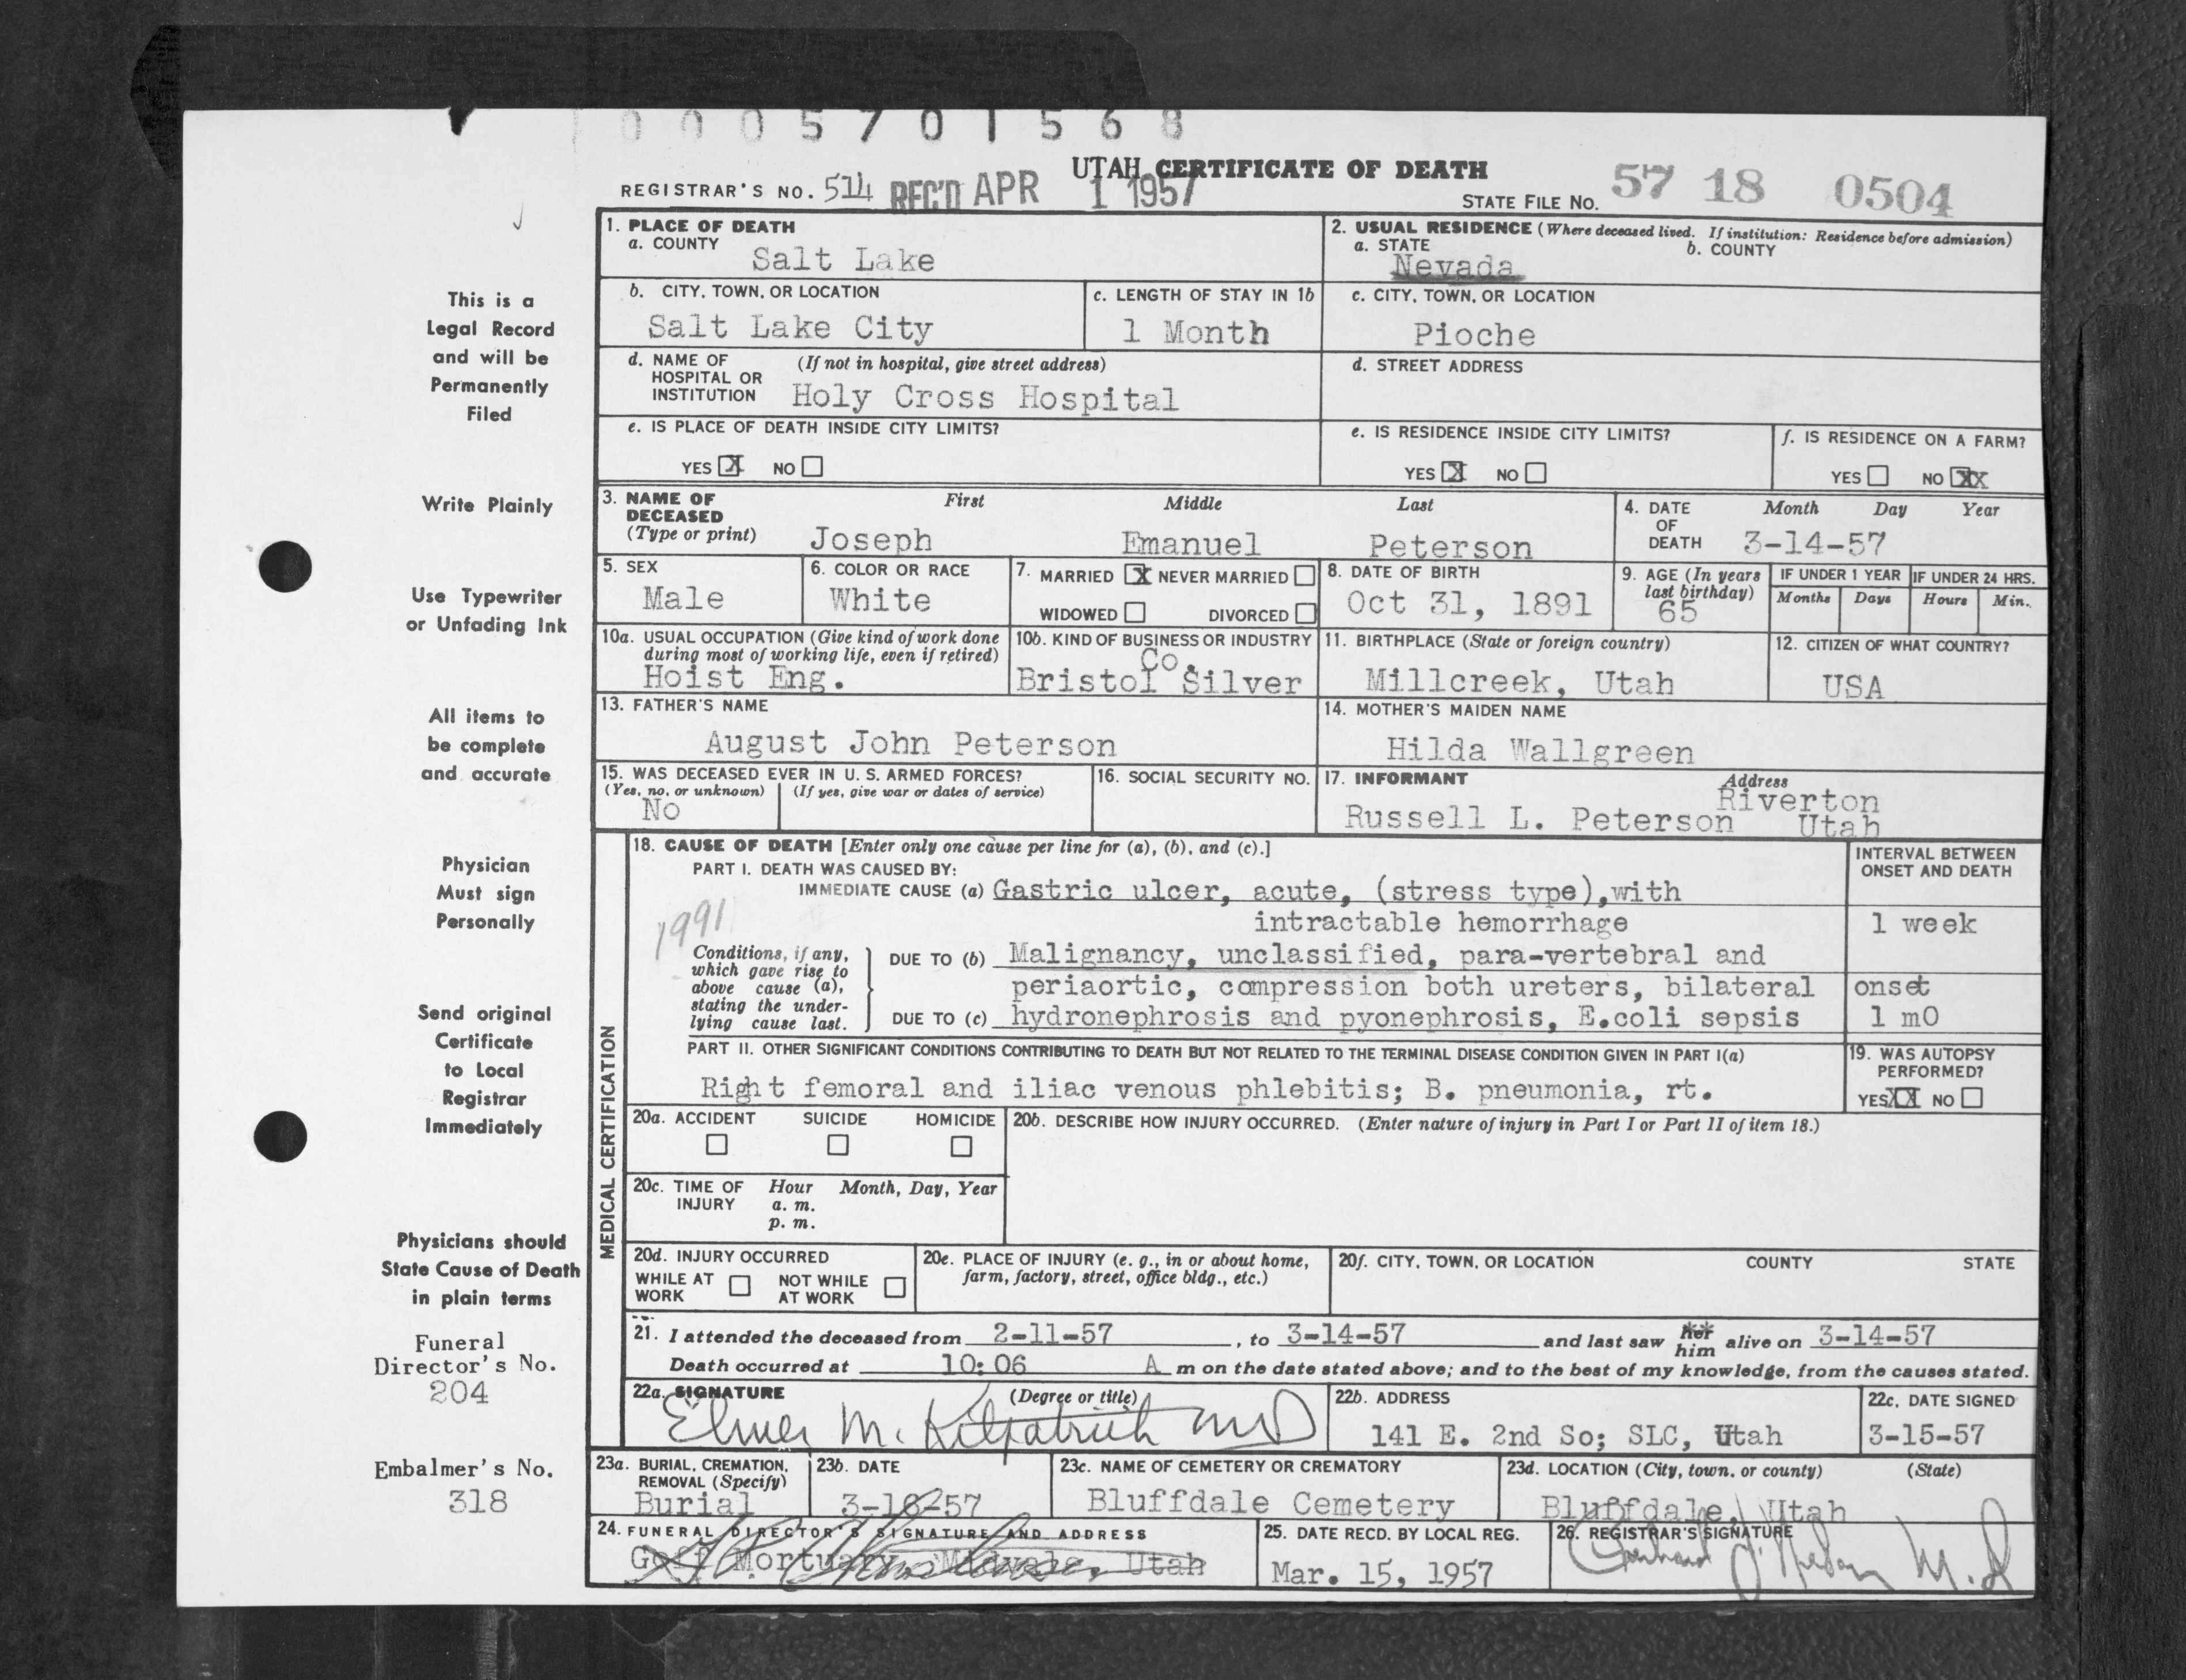 0005701568
UTAH CERTIFICATE OF DEATH
REGISTRAR'S NO. 514 REC'D APR 1 1957
STATE FILE NO. 57 18 0504
1. PLACE OF DEATH
a. COUNTY
Salt Lake
2. USUAL RESIDENCE (Where deceased lived. If institution: Residence before admission)
a. STATE b. COUNTY
Nevada
b. CITY, TOWN, OR LOCATION
Salt Lake City
c. LENGTH OF STAY IN 1b
1 Month
c. CITY, TOWN, OR LOCATION
Pioche
d. NAME OF HOSPITAL OR INSTITUTION (If not in hospital, give street address)
Holy Cross Hospital
d. STREET ADDRESS
e. IS PLACE OF DEATH INSIDE CITY LIMITS?
YES X NO
e. IS RESIDENCE INSIDE CITY LIMITS?
YES X NO
f. IS RESIDENCE ON A FARM?
YES NO XX
3. NAME OF DECEASED (Type or print)
First Middle Last
Joseph Emanuel Peterson
4. DATE OF DEATH Month Day Year
3-14-57
5. SEX
Male
6. COLOR OR RACE
White
7. MARRIED X NEVER MARRIED
WIDOWED DIVORCED
8. DATE OF BIRTH
Oct 31, 1891
9. AGE (In years last birthday)
65
IF UNDER 1 YEAR IF UNDER 24 HRS.
Months Days Hours Min.
10a. USUAL OCCUPATION (Give kind of work done during most of working life, even if retired)
Hoist Eng.
10b. KIND OF BUSINESS OR INDUSTRY
Co.
Bristol Silver
11. BIRTHPLACE (State or foreign country)
Millcreek, Utah
12. CITIZEN OF WHAT COUNTRY?
USA
13. FATHER'S NAME
August John Peterson
14. MOTHER'S MAIDEN NAME
Hilda Wallgreen
15. WAS DECEASED EVER IN U. S. ARMED FORCES?
(Yes, no, or unknown) (If yes, give war or dates of service)
No
16. SOCIAL SECURITY NO.
17. INFORMANT Address
Riverton
Russell L. Peterson Utah
MEDICAL CERTIFICATION
18. CAUSE OF DEATH [Enter only one cause per line for (a), (b), and (c).]
PART I. DEATH WAS CAUSED BY:
IMMEDIATE CAUSE (a) Gastric ulcer, acute, (stress type),with
intractable hemorrhage
1991
Conditions, if any, which gave rise to above cause (a), stating the underlying cause last.
DUE TO (b) Malignancy, unclassified, para-vertebral and
periaortic, compression both ureters, bilateral
DUE TO (c) hydronephrosis and pyonephrosis, E.coli sepsis
INTERVAL BETWEEN ONSET AND DEATH
1 week
onset
1 mO
PART II. OTHER SIGNIFICANT CONDITIONS CONTRIBUTING TO DEATH BUT NOT RELATED TO THE TERMINAL DISEASE CONDITION GIVEN IN PART I(a)
Right femoral and iliac venous phlebitis; B. pneumonia, rt.
19. WAS AUTOPSY PERFORMED?
YES XX NO
20a. ACCIDENT SUICIDE HOMICIDE
20b. DESCRIBE HOW INJURY OCCURRED. (Enter nature of injury in Part I or Part II of item 18.)
20c. TIME OF INJURY Hour Month, Day, Year
a. m.
p. m.
20d. INJURY OCCURRED
WHILE AT WORK NOT WHILE AT WORK
20e. PLACE OF INJURY (e. g., in or about home, farm, factory, street, office bldg., etc.)
20f. CITY, TOWN, OR LOCATION COUNTY STATE
21. I attended the deceased from 2-11-57, to 3-14-57 and last saw her him alive on 3-14-57
Death occurred at 10:06 A m on the date stated above; and to the best of my knowledge, from the causes stated.
22a. SIGNATURE (Degree or title)
Elmer M. Kilpatrick MD
22b. ADDRESS
141 E. 2nd So; SLC, Utah
22c. DATE SIGNED
3-15-57
23a. BURIAL, CREMATION, REMOVAL (Specify)
Burial
23b. DATE
3-16-57
23c. NAME OF CEMETERY OR CREMATORY
Bluffdale Cemetery
23d. LOCATION (City, town, or county) (State)
Bluffdale, Utah
24. FUNERAL DIRECTOR'S SIGNATURE AND ADDRESS
Goff Mortuary Midvale, Utah
25. DATE RECD. BY LOCAL REG.
Mar. 15, 1957
26. REGISTRAR'S SIGNATURE
M.D
This is a
Legal Record
and will be
Permanently
Filed
Write Plainly
Use Typewriter
or Unfading Ink
All items to
be complete
and accurate
Physician
Must sign
Personally
Send original
Certificate
to Local
Registrar
Immediately
Physicians should
State Cause of Death
in plain terms
Funeral
Director's No.
204
Embalmer's No.
318